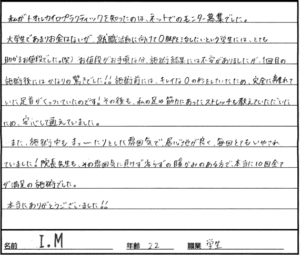 私がトオルカイロプラクティックを知ったのは、ネットでのモニター募集でした。
大学生であまりお金はないが、就職活動に向けてO脚を治したいという学生には、とても
助かるお値段でした。(笑) お値段がお手頃な分、施術結果には不安がありましたが、1回目の
施術後にはかなりの驚きでした!! 施術前には、キレイなOの形をしていたため、完全に離れて
いた足首がくっついていたのです! その後も、私の足や筋力にあったストレッチも教えていただいたた
め、安心して通えていました。
また、施術中もまったりとした雰囲気で居心地が良く、毎回とてもいやされ
ていました! 院長先生も、その雰囲気に負けず劣らずの暖かみのある方で、本当に10回全て
が満足の施術でした。
本当にありがとうございました!!
名前 I.M 年齢 22 職業 学生